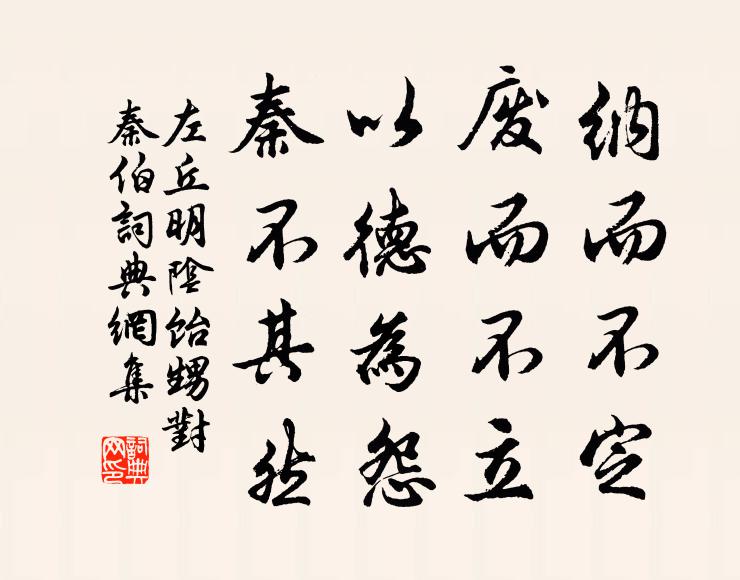 納而不定
廢而不立
以德為怨
秦不其然
左丘明陰飴甥對
秦伯詞典網集
詞典網印